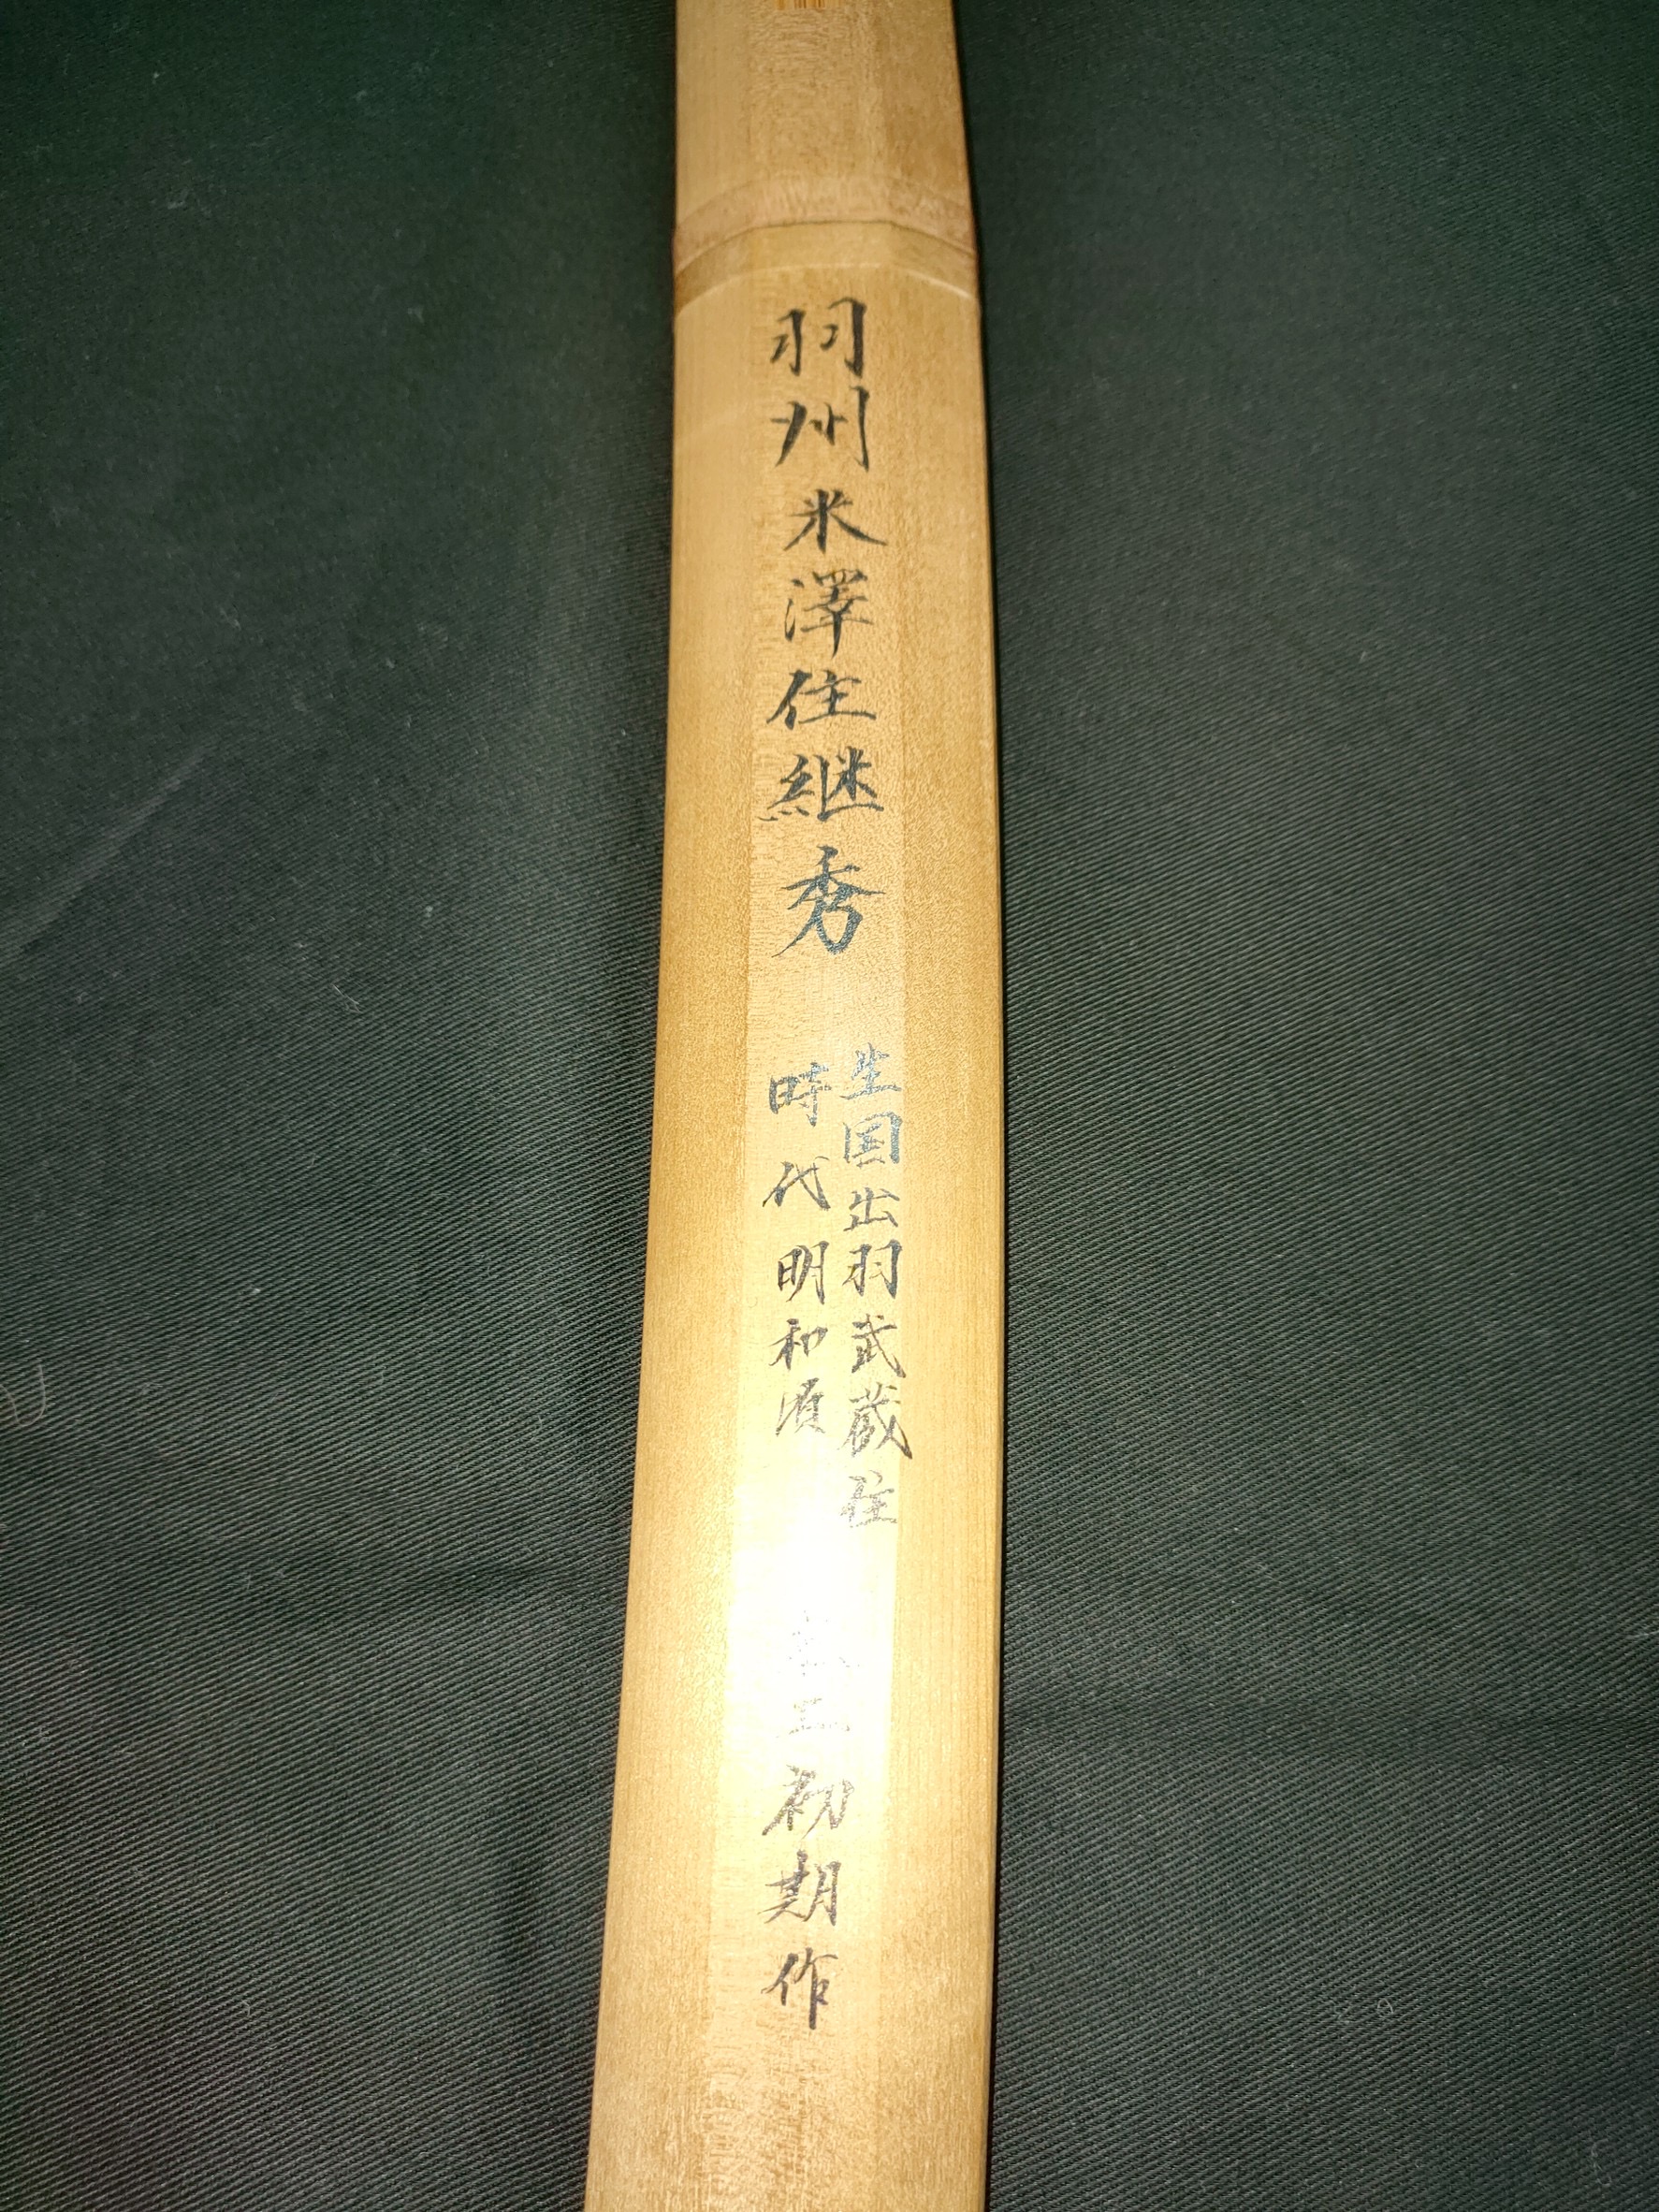 羽州米澤住継秀
生国出羽武蔵住
時代明和頃
工初期作